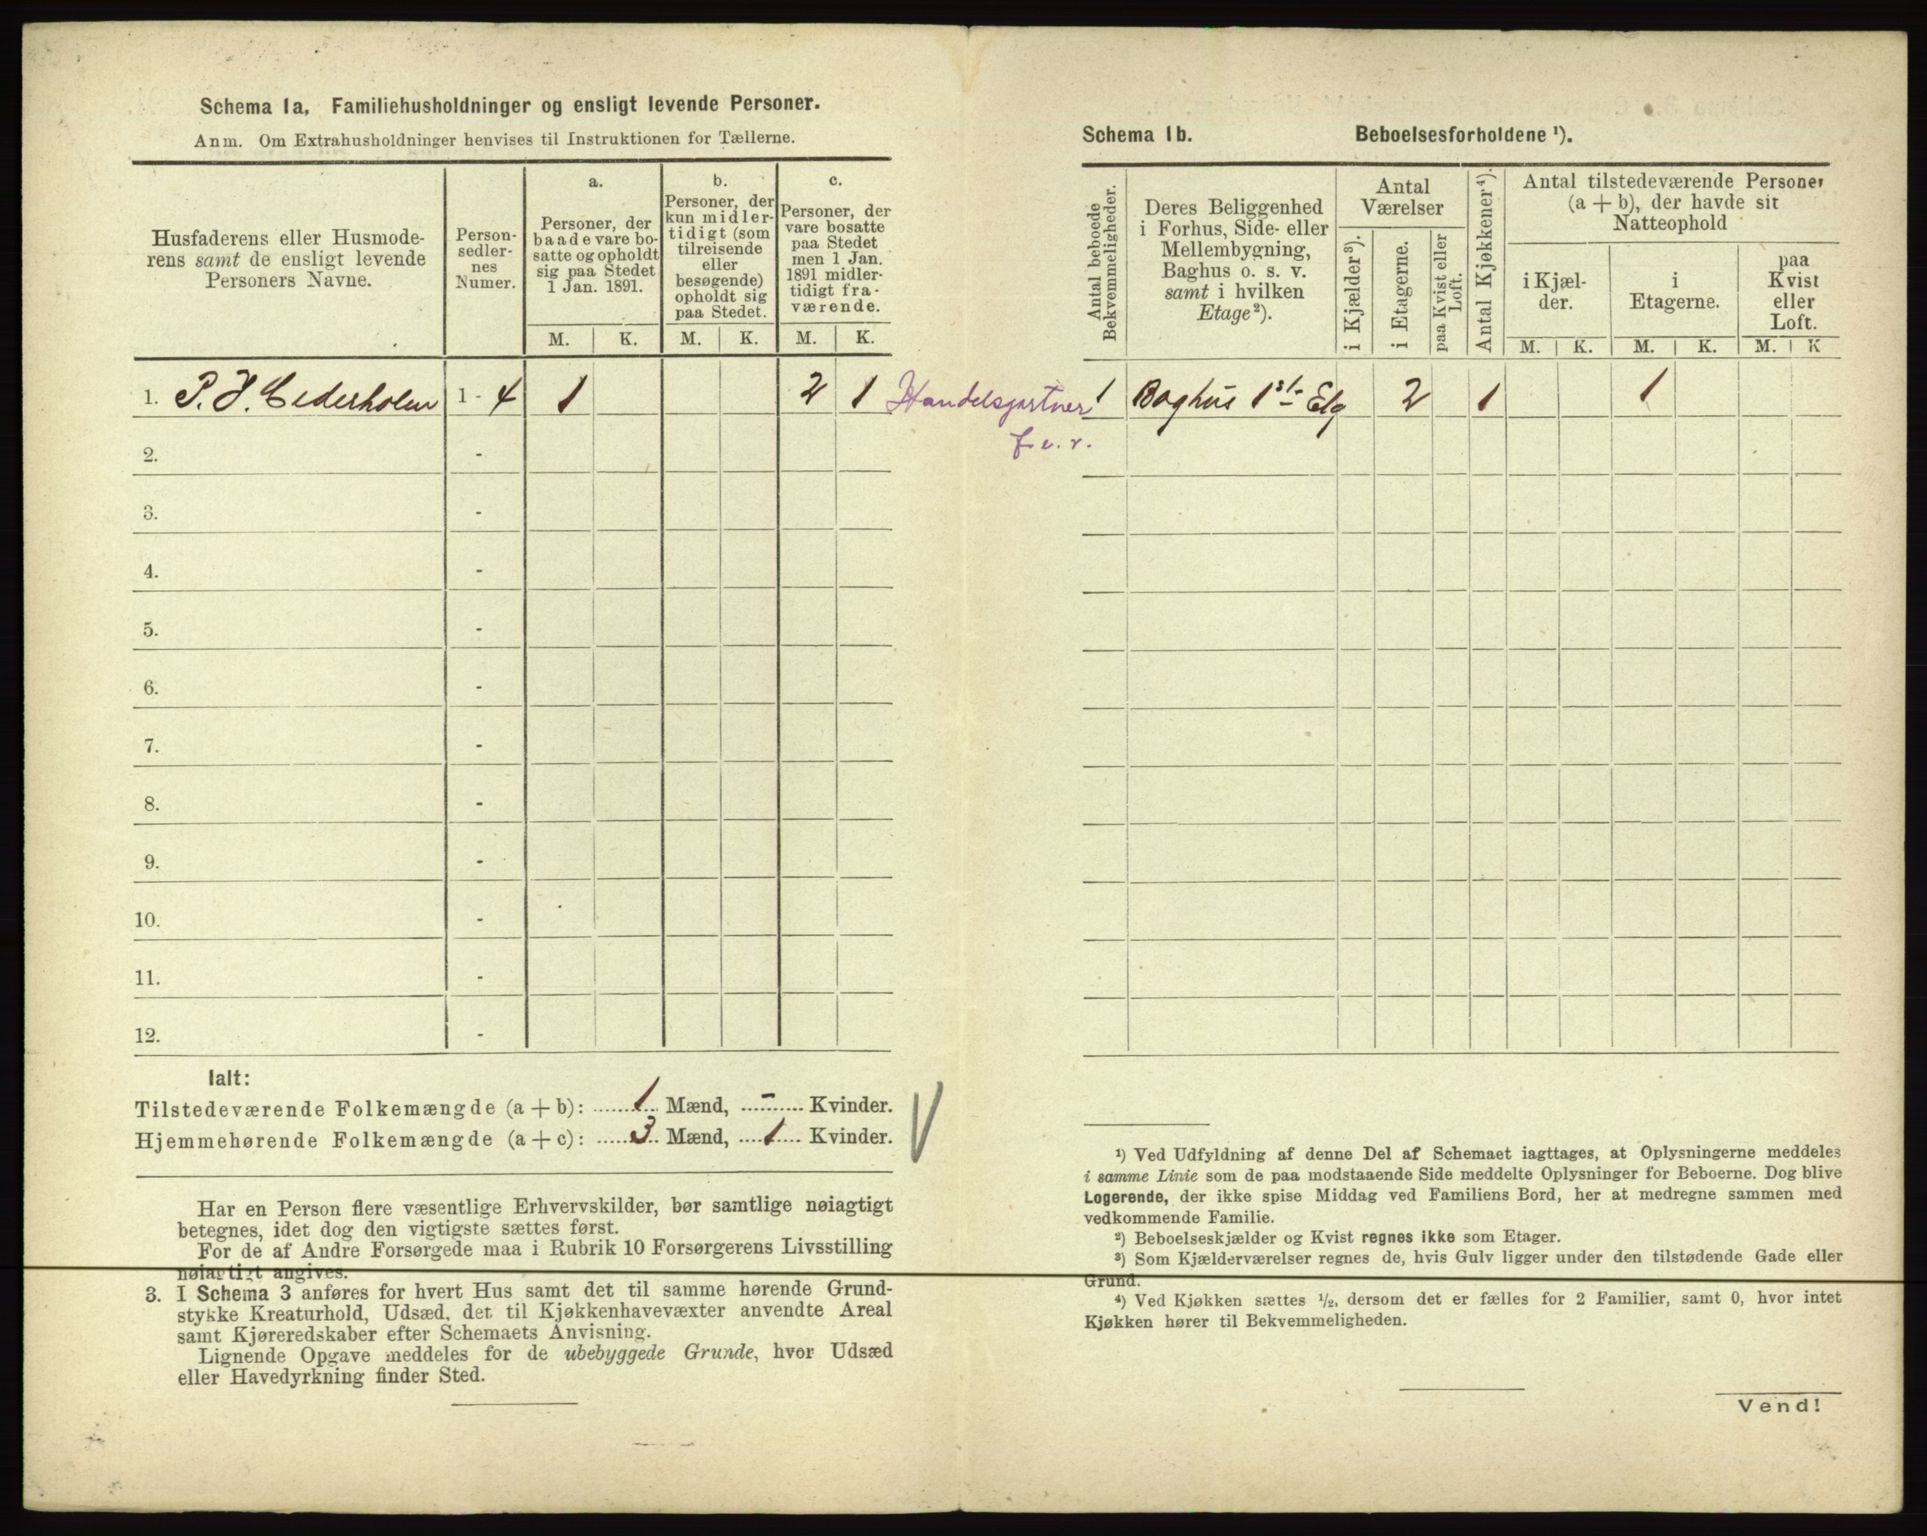 Schema 1a, Familiehusholdninger og ensligt levende Personer.
Anm. Om Extrahusholdninger henvises til Instruktionen for Tællerne.
Husfaderens eller Husmode-
rens samt de ensligt levende
Personers Navne.
Person-
sedler-
nes
Numer.
a.
Personer, der
baade vare bo-
satte og opholdt
sig paa Stedet
1 Jan. 1891.
b.
Personer, der
kun midler-
tidigt (som
tilreisende
eller
besøgende)
opholdt sig
paa Stedet.
c.
Personer, der
vare bosatte
paa Stedet
men 1 Jan.
1891 midler-
tidigt fra-
værende.
M. K. M. K. M. K.
1. P. H. Cederholm 1 - 4 1 2 1 Handelsgartner
f. e. r.
2. -
3. -
4. -
5. -
6. -
7. -
8. -
9. -
10. -
11. -
12. -
Ialt:
Tilstedeværende Folkemængde (a + b): 1 Mænd, - Kvinder.
Hjemmehørende Folkemængde (a + c): 3 Mænd, 1 Kvinder.
Har en Person flere væsentlige Erhvervskilder, bør samtlige nøiagtigt
betegnes, idet dog den vigtigste sættes først.
For de af Andre Forsørgede maa i Rubrik 10 Forsørgerens Livsstilling
nøiagtigt angives.
3. I Schema 3 anføres for hvert Hus samt det til samme hørende Grund-
stykke Kreaturhold, Udsæd, det til Kjøkkenhavevæxter anvendte Areal
samt Kjøreredskaber efter Schemaets Anvisning.
Lignende Opgave meddeles for de ubebyggede Grunde, hvor Udsæd
eller Havedyrkning finder Sted.
Schema 1b. Beboelsesforholdene ¹).
Antal beboede
Bekvemmeligheder.
Deres Beliggenhed
i Forhus, Side- eller
Mellembygning,
Baghus o. s. v.
samt i hvilken
Etage²).
Antal
Værelser
i Kjælder³).
i Etagerne.
paa Kvist eller
Loft.
Antal Kjøkkener⁴).
Antal tilstedeværende Personer
(a + b), der havde sit
Natteophold
i Kjæl-
der.
i
Etagerne.
paa
Kvist
eller
Loft.
M. K. M. K. M. K
1 Baghus 1ste Etg 2 1 1
¹) Ved Udfyldning af denne Del af Schemaet iagttages, at Oplysningerne meddeles
i samme Linie som de paa modstaaende Side meddelte Oplysninger for Beboerne. Dog blive
Logerende, der ikke spise Middag ved Familiens Bord, her at medregne sammen med
vedkommende Familie.
²) Beboelseskjælder og Kvist regnes ikke som Etager.
³) Som Kjælderværelser regnes de, hvis Gulv ligger under den tilstødende Gade eller
Grund.
⁴) Ved Kjøkken sættes ½, dersom det er fælles for 2 Familier, samt 0, hvor intet
Kjøkken hører til Bekvemmeligheden.
Vend!